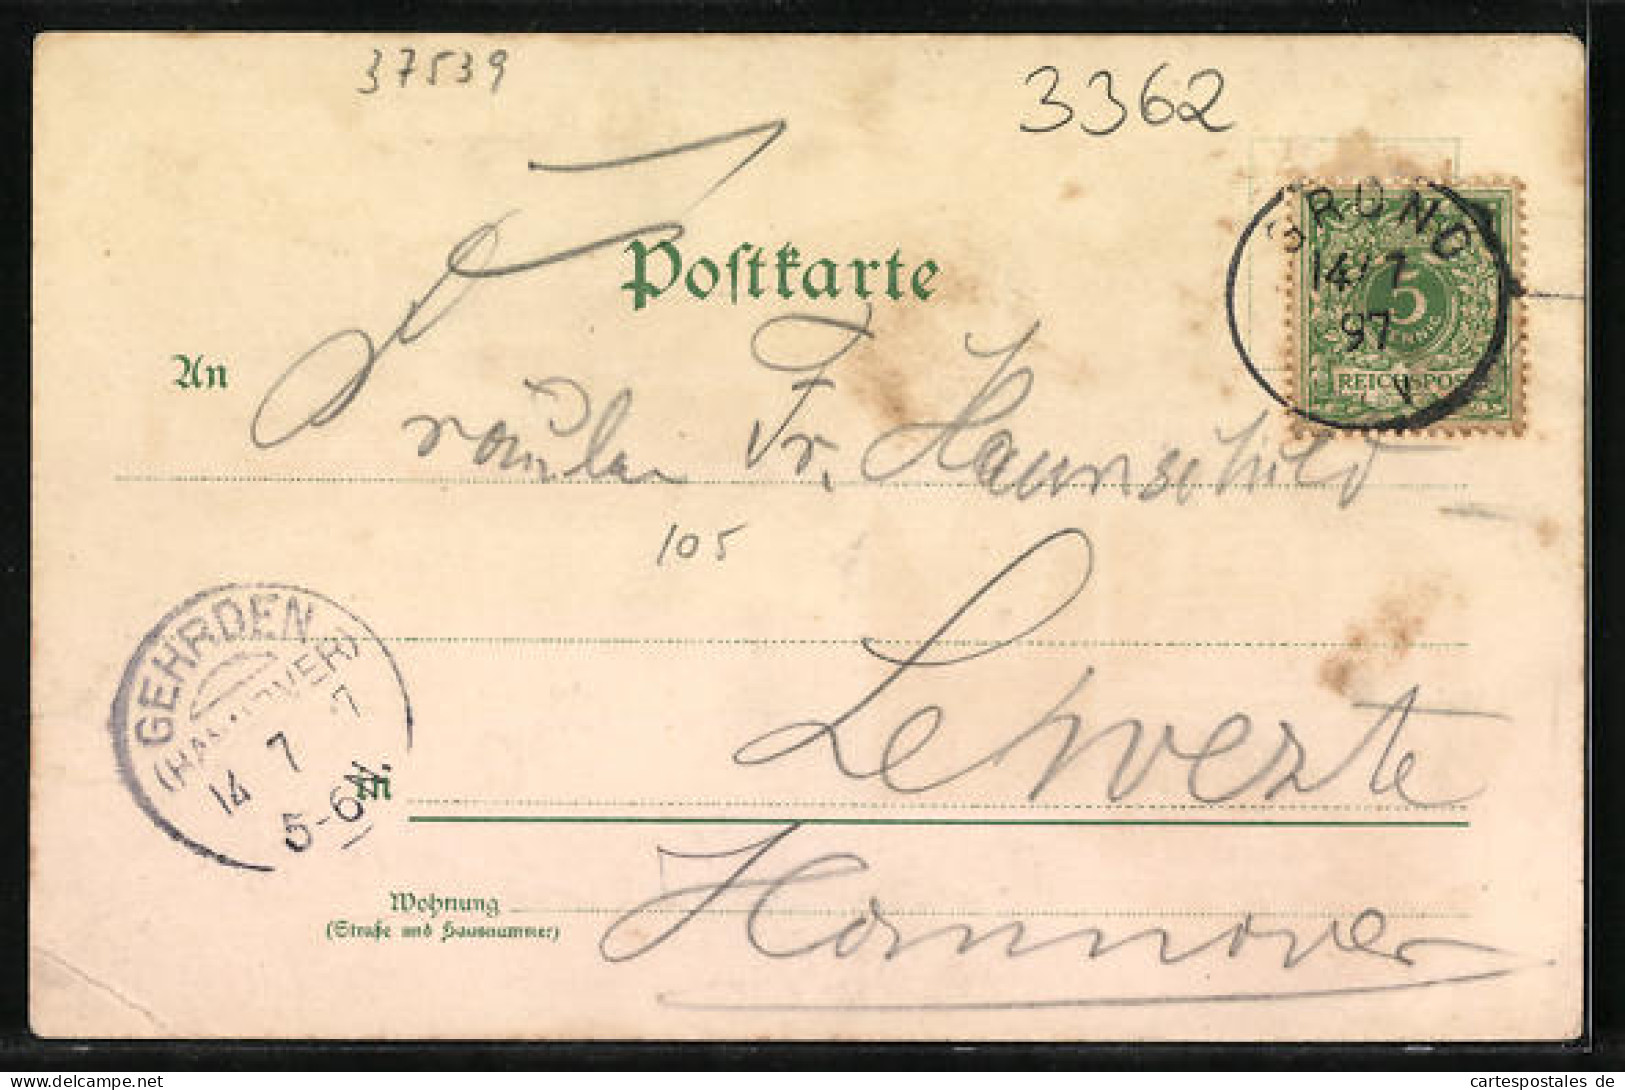 37539
3362
Postkarte
GRUND
14/7
97
5
REICHSPOST
An
Fräulein Fr. Haunschild
105
GEHRDEN
(HANNOVER)
14 7 97
5-6N.
in
Leveste
Wohnung
(Straße und Hausnummer)
Hannover
cartespostales de